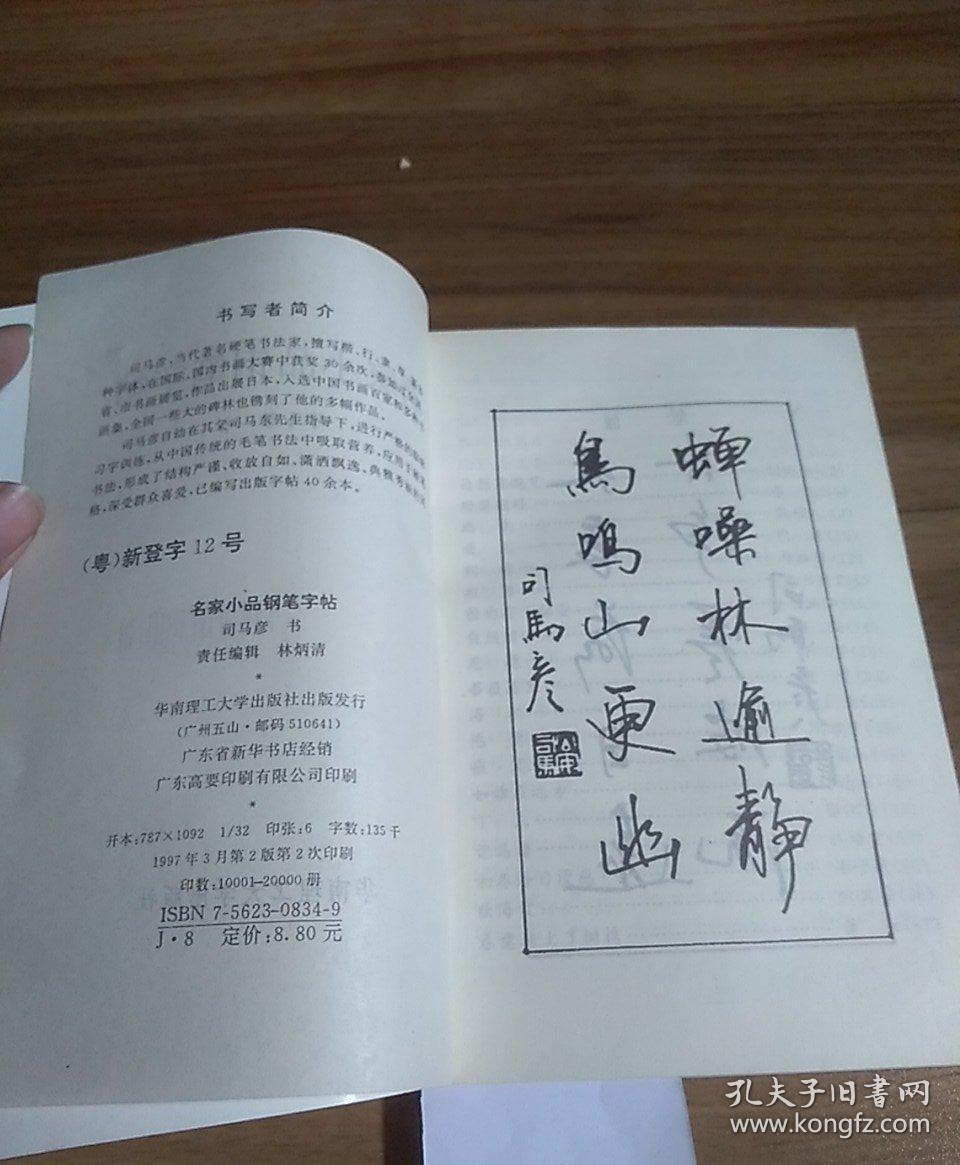 书写者简介
司马彦,当代著名硬笔书法家,擅写楷、行、隶、草、篆
种字体,在国际、国内书画大赛中获奖30余次,参加过
省、市书画展览,作品出展日本,入选中国书画百家和多种
画集,全国一些大的碑林也镌刻了他的多幅作品。
司马彦自幼在其父司马东先生指导下,进行严格的
习字训练,从中国传统的毛笔书法中吸取营养,应用于
书法,形成了结构严谨、收放自如、潇洒飘逸、典雅秀
格,深受群众喜爱,已编写出版字帖40余本。
(粤)新登字12号
名家小品钢笔字帖
司马彦 书
责任编辑 林炳清
*
华南理工大学出版社出版发行
(广州五山·邮码510641)
广东省新华书店经销
广东高要印刷有限公司印刷
*
开本:787×1092 1/32 印张:6 字数:135千
1997年3月第2版第2次印刷
印数:10001-20000册
ISBN 7-5623-0834-9
J·8 定价:8.80元
蝉噪林逾静
鳥鸣山更幽
司馬彦
孔夫子旧书网
www.kongfz.com